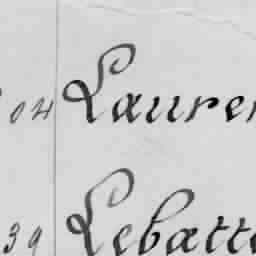 04 Lauren
39 Lebatte